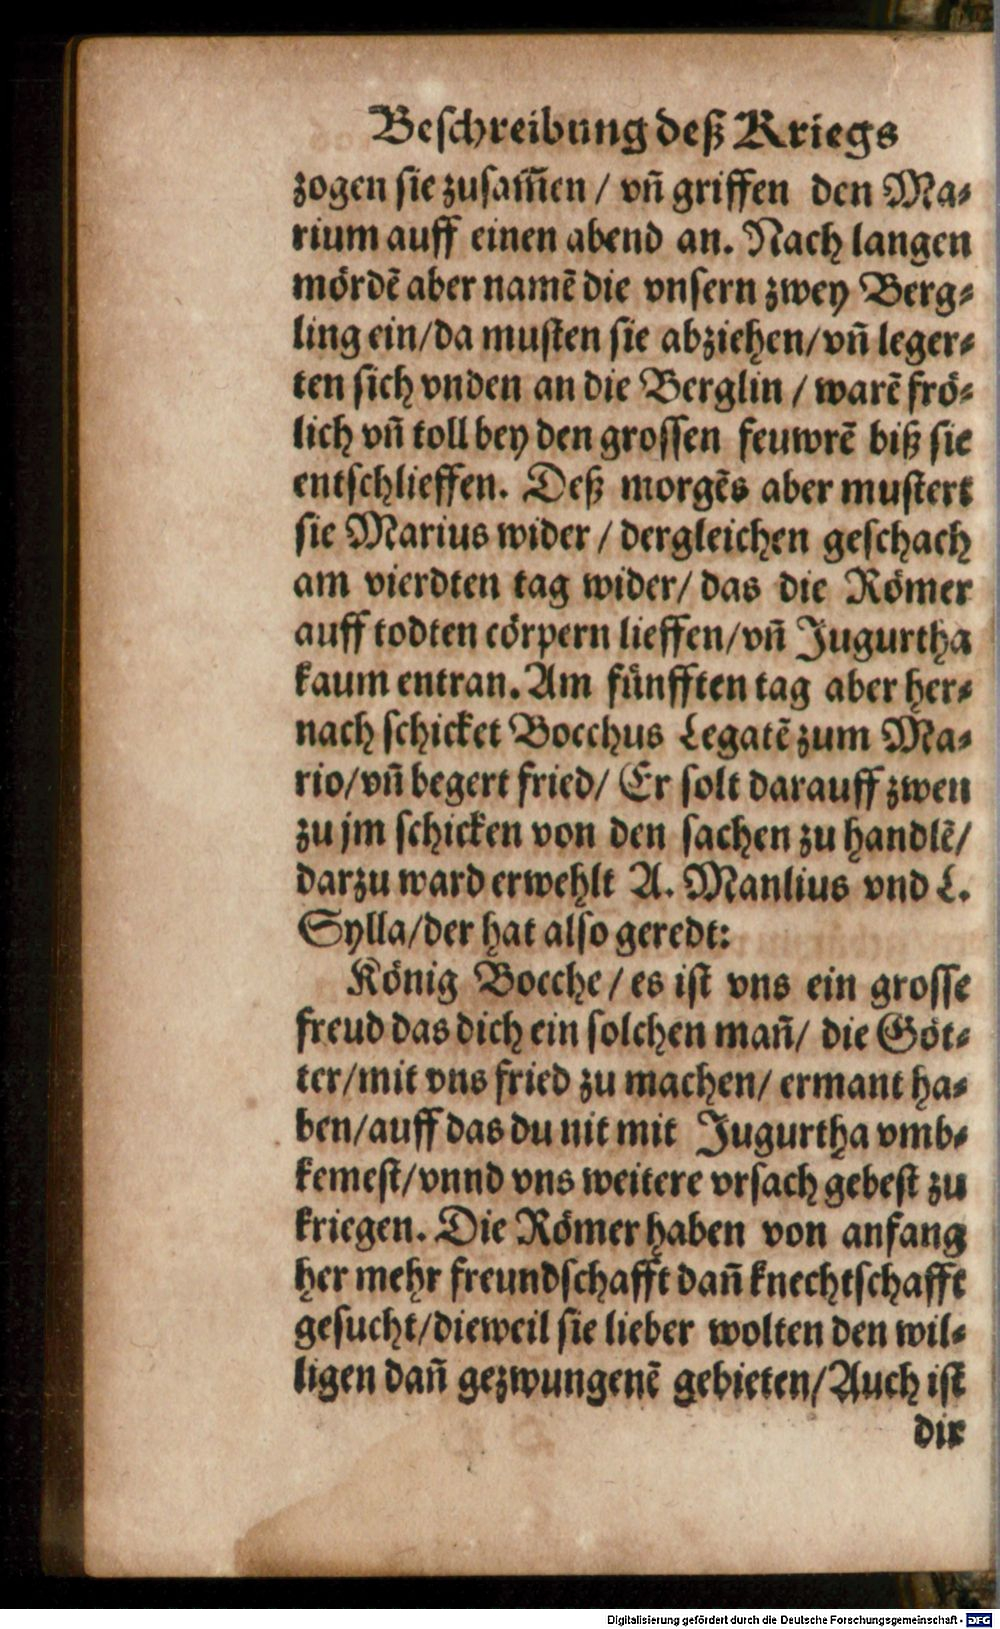 Beschreibung deß Kriegs
zogen sie zusam̃en / vñ griffen den Ma-
rium auff einen abend an. Nach langen
mördẽ aber namẽ die vnsern zwey Berg-
ling ein/da musten sie abziehen/vñ leger-
ten sich vnden an die Berglin / warẽ frö-
lich vñ toll bey den grossen feuwrẽ biß sie
entschlieffen. Deß morgẽs aber mustert
sie Marius wider / dergleichen geschach
am vierdten tag wider/ das die Römer
auff todten cörpern lieffen/vñ Jugurtha
kaum entran. Am fünfften tag aber her-
nach schicket Bocchus Legatẽ zum Ma-
rio/vñ begert fried/ Er solt darauff zwen
zu jm schicken von den sachen zu handlẽ/
darzu ward erwehlt A. Manlius vnd L.
Sylla/der hat also geredt:
König Bocche / es ist vns ein grosse
freud das dich ein solchen mañ/ die Göt-
ter/mit vns fried zu machen/ ermant ha-
ben/auff das du nit mit Jugurtha vmb-
kemest/vnnd vns weitere vrsach gebest zu
kriegen. Die Römer haben von anfang
her mehr freundschafft dañ knechtschafft
gesucht/dieweil sie lieber wolten den wil-
ligen dañ gezwungenẽ gebieten/Auch ist
dir
Digitalisierung gefördert durch die Deutsche Forschungsgemeinschaft - DFG